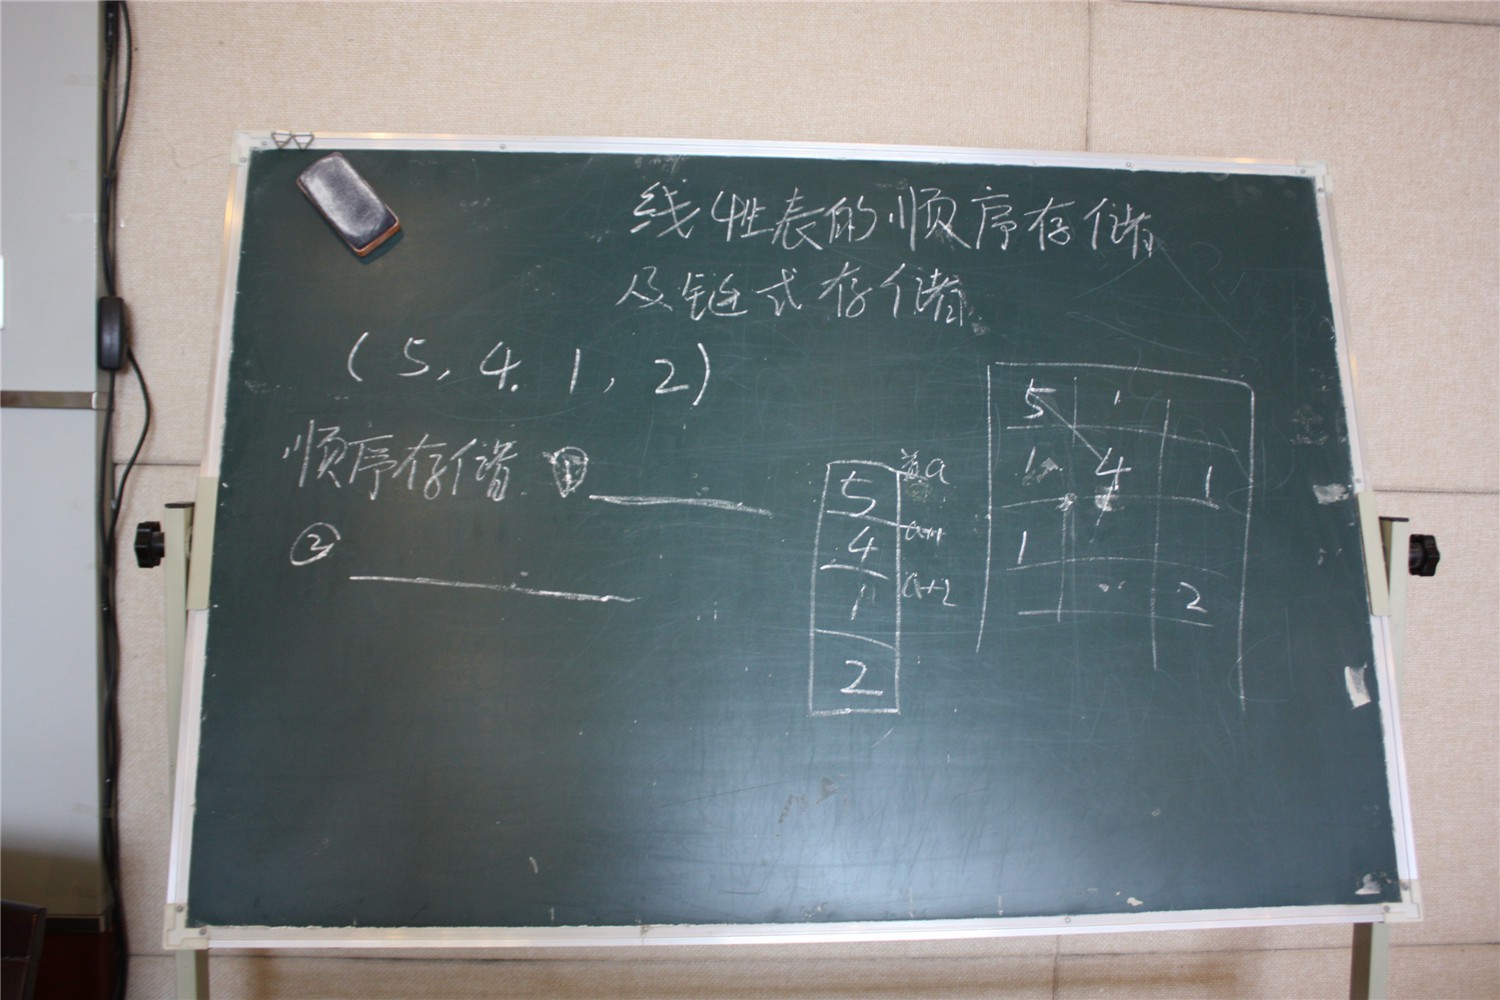 线性表的顺序存储
及链式存储
(5,4,1,2)
顺序存储 ①
②
5
a
4
a+1
1
a+2
2
5 1
1 4 1
1
2